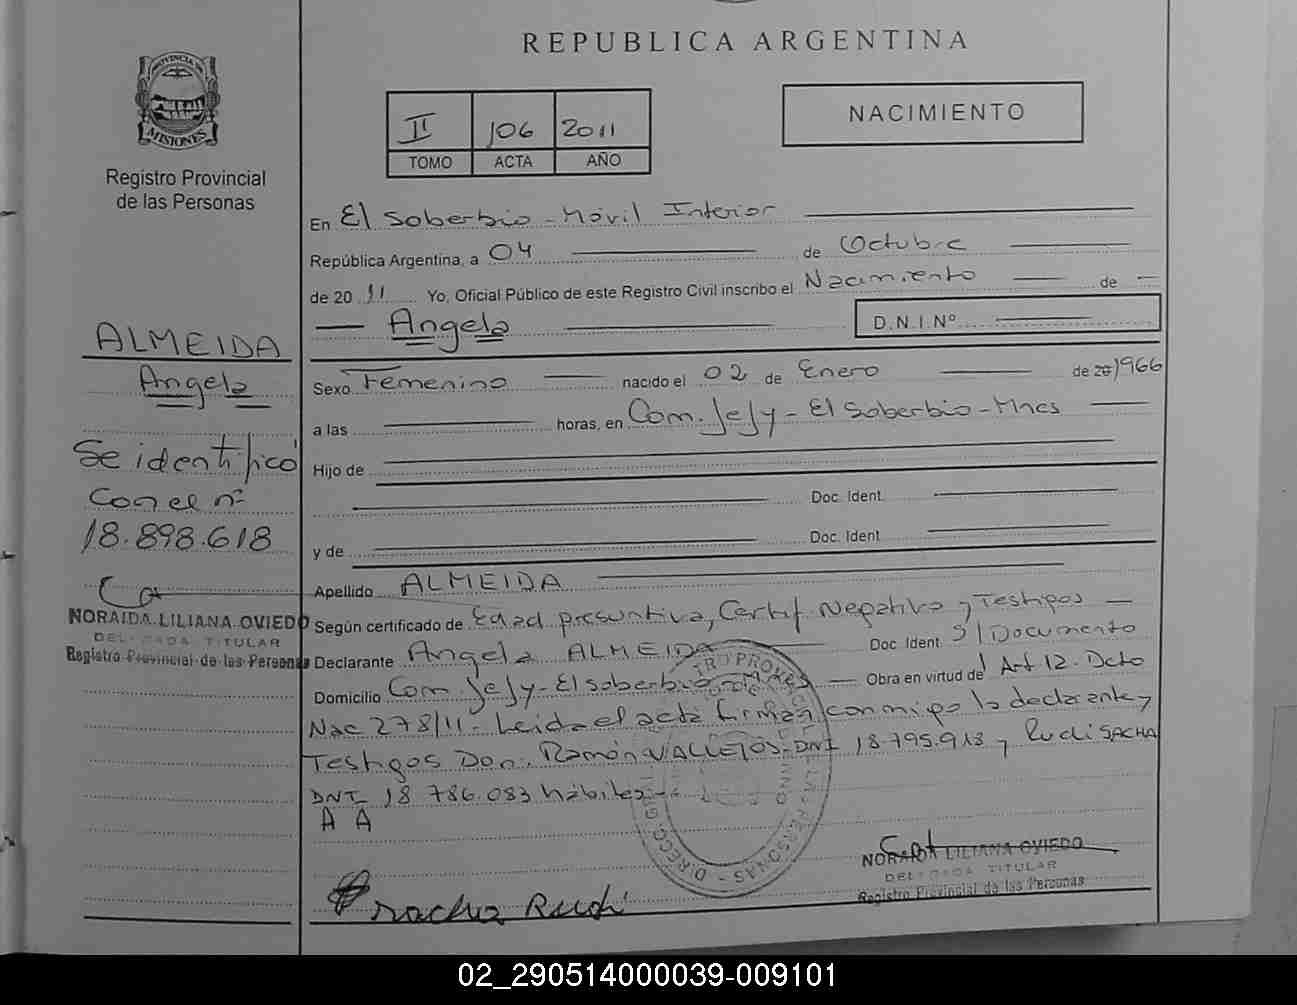 REPUBLICA ARGENTINA
PROVINCIA DE
MISIONES
Registro Provincial
de las Personas
II 106 2011
TOMO ACTA AÑO
NACIMIENTO
En El Soberbio - Móvil Interior
República Argentina, a 04 de Octubre
de 20 11 Yo, Oficial Público de este Registro Civil inscribo el Nacimiento de
Angela D.N.I.Nº
ALMEIDA
Angela
Se identificó
Con el nº
18.898.618
NORAIDA LILIANA OVIEDO
DELEGADA TITULAR
Registro Provincial de las Personas
Sexo Femenino nacido el 02 de Enero de 20 1966
a las horas, en Com. Jejy - El Soberbio - Mnes
Hijo de
Doc. Ident.
y de Doc. Ident.
Apellido ALMEIDA
Según certificado de Edad presuntiva, Certif. Negativo y Testigos
Declarante Angela ALMEIDA Doc. Ident. S/Documento
Domicilio Com. Jejy - El Soberbio - Mnes Obra en virtud del Art 12. Dcto
Nac 278/11 - Leida el acta firman conmigo la declarante y
Testigos Don: Ramón VALLEJOS - DNI 18.795.918 y Rudi SACHA
DNI 18 786.083 hábiles
A A
NORAIDA LILIANA OVIEDO
DELEGADA TITULAR
Registro Provincial de las Personas
Rudi
02_290514000039-009101